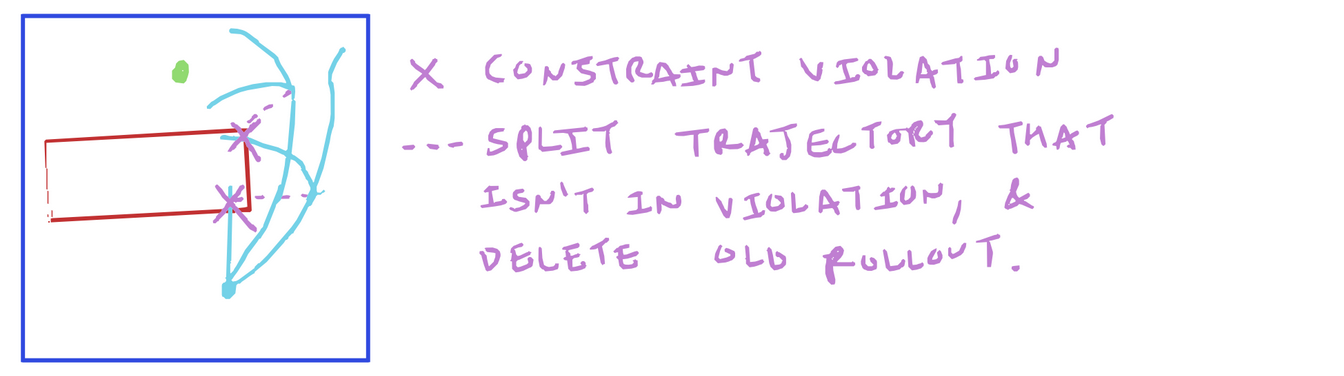 X CONSTRAINT VIOLATION
--- SPLIT TRAJECTORY THAT
ISN'T IN VIOLATION, &
DELETE OLD ROLLOUT.